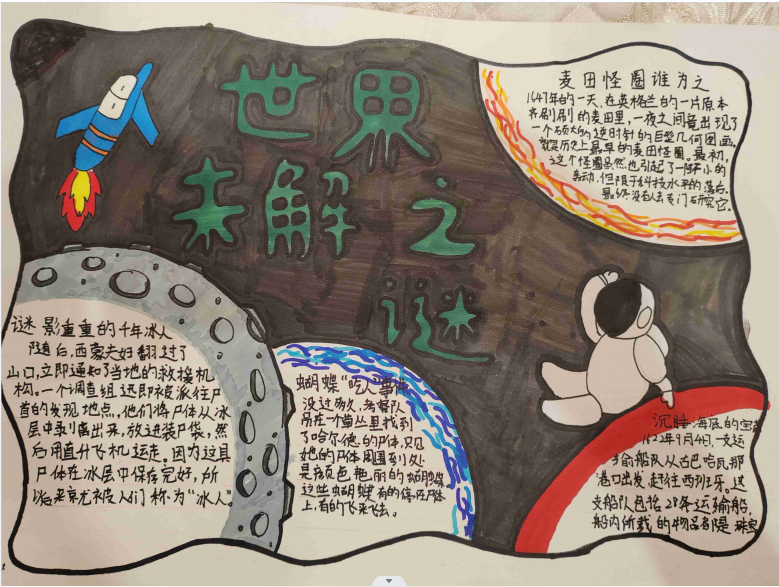 世界
未解之
谜
麦田怪圈谁为之
1647年的一天,在英格兰的一片原本
齐刷刷的麦田里,一夜之间竟出现了
一个硕大的逆时针的巨型几何图画。
就是历史上最早的麦田怪圈。最初,
这个怪圈虽然也引起了一阵不小的
轰动,但限于科技水平的落后,
最终没有人去专门研究它。
谜影重重的千年冰人
随后,西蒙夫妇翻过了
山口,立即通知了当地的救援机
构。一个调查组迅即被派往尸
首的发现地点,他们将尸体从冰
层中剥凿出来,放进装尸袋,然
后用直升飞机运走。因为这具
尸体在冰层中保存完好,所
以后来就被人们称为“冰人”。
蝴蝶“吃人”事件
没过多久,考察队
员在一个黄丛里找到
了哈尔德的尸体,只见
她的尸体周围到处
是颜色艳丽的蝴蝶
这些蝴蝶有的停在尸体
上,有的飞来飞去。
沉睡海底的宝
1622年9月4日,一支运
输船队从古巴哈瓦那
港口出发,赶往西班牙。这
支船队包括28条运输船,
船内所载的物品都是珠宝